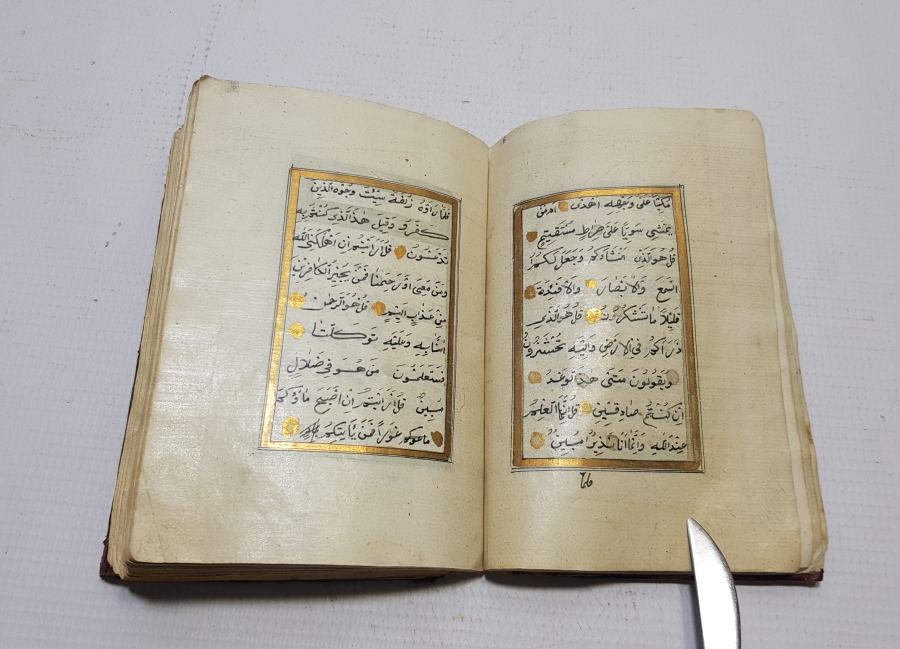 مكبا على وجهه اهدى امن
يمشي سويا على صراط مستقيم
قل هو الذي انشاءكم وجعل لكم
السمع والابصار والافئدة
قليلا ما تشكرون قل هو الذي
ذراكم في الارض واليه تحشرون
ويقولون متى هذا لوعد
ان كنتم صادقين قل انما العلم
عند الله وانما انا نذير مبين
فلما
فلما راوه زلفة سيئت وجوه الذين
كفرو وقيل هذا لذي كنتم به
تدعون قل ارايتم ان اهلكني الله
ومن معي او رحمنا فمن يجير الكافرين
من عذاب اليم قل هو الرحمن
امنا به وعليه توكلنا
فستعلمون من هو في ضلال
مبين قل ارايتم ان اصبح ماؤكم
غورا فمن ياتيكم